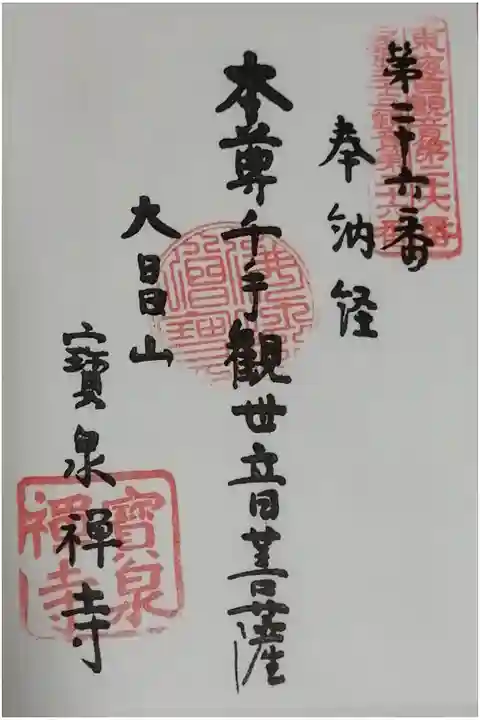 第二十六番
奉納経
本尊千手観世音菩薩
大昌山
寳泉禅寺
寳泉
禅寺